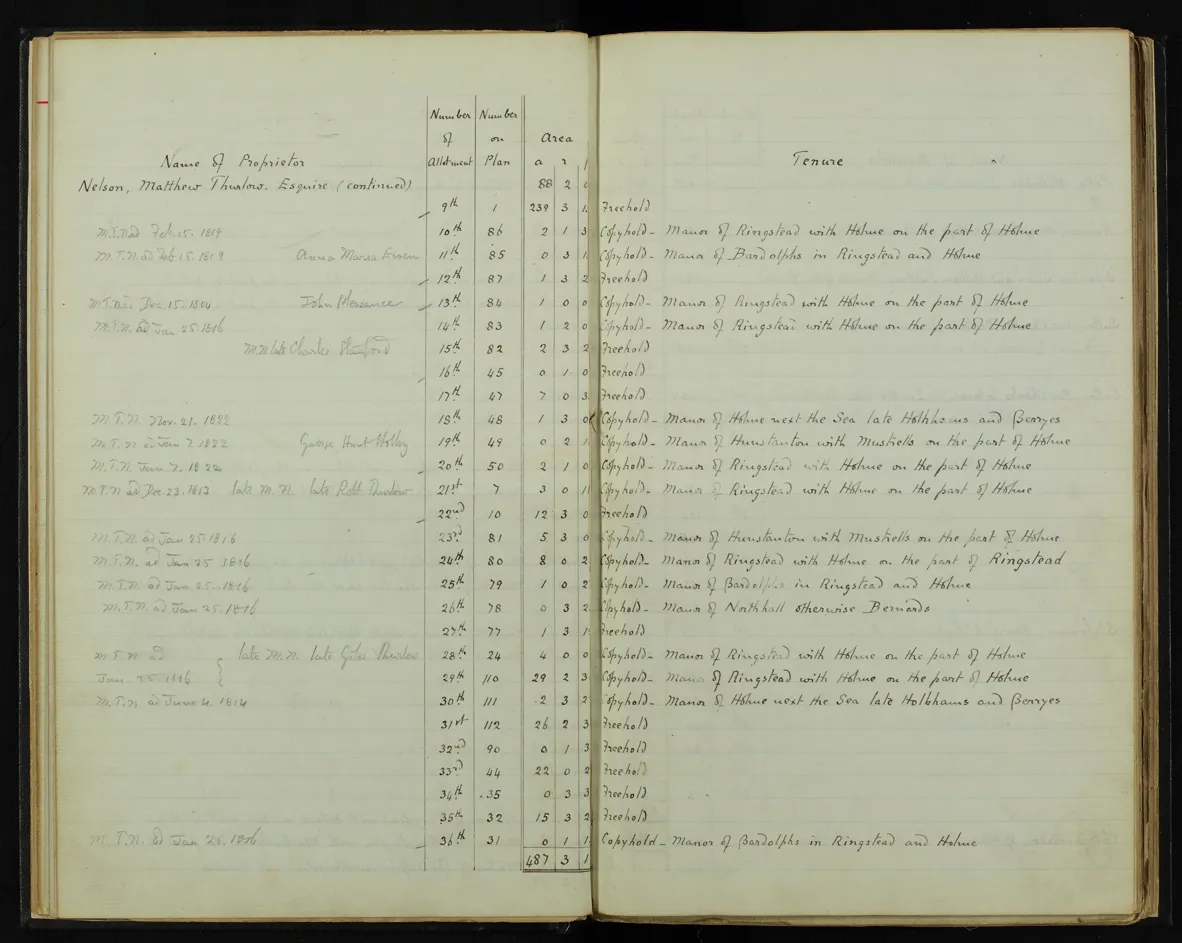 Number Number
of on Area
Name of Proprietor Allotment Plan a r Tenure
Nelson, Matthew Thurlow. Esquire (continued) 88 2 0
9th 1 239 3 Freehold
M.T.N ad Feb. 15. 1819 10th 86 2 1 3 Copyhold - Manor of Ringstead with Holme on the part of Holme
M.T.N ad Feb 15. 1819 Anna Maria 11th 85 0 3 1 Copyhold - Manor of Bardolphs in Ringstead and Holme
12th 87 1 3 2 Freehold
M.T.N ad Dec. 15. 1804 John Pleasance 13th 84 1 0 0 Copyhold - Manor of Ringstead with Holme on the part of Holme
M.T.N. ad Jan. 25. 1816 14th 83 1 2 0 Copyhold - Manor of Ringstead with Holme on the part of Holme
M.N. late Charles 15th 82 2 3 2 Freehold
16th 45 0 1 0 Freehold
17th 47 7 0 3 Freehold
M.T.N. Nov. 21. 1822 18th 48 1 3 0 Copyhold - Manor of Holme next the Sea late Holbhams and Berryes
M.T.N ad Jan 7. 1822 George Hunt Holley 19th 49 0 2 1 Copyhold - Manor of Hunstanton with Mustrells on the part of Holme
M.T.N Jan. 7. 1822 20th 50 2 1 0 Copyhold - Manor of Ringstead with Holme on the part of Holme
M.T.N ad Dec. 23. 1813 late M.N. late Robt Thurlow 21st 7 3 0 1 Copyhold - Manor of Ringstead with Holme on the part of Holme
22nd 10 12 3 0 Freehold
M.T.N. ad Jan 25. 1816 23rd 81 5 3 0 Copyhold - Manor of Hunstanton with Mustrells on the part of Holme
M.T.N. ad Jan 25. 1816 24th 80 8 0 2 Copyhold - Manor of Ringstead with Holme on the part of Ringstead
M.T.N. ad Jan. 25. 1816 25th 79 1 0 2 Copyhold - Manor of Bardolphs in Ringstead and Holme
M.T.N. ad Jan. 25. 1816 26th 78 0 3 2 Copyhold - Manor of Northhall otherwise Bernards
27th 77 1 3 1 Freehold
M.T.N ad late M.N. late Giles Thurlow 28th 24 4 0 0 Copyhold - Manor of Ringstead with Holme on the part of Holme
Jan. 25. 1816 29th 110 29 2 3 Copyhold - Manor of Ringstead with Holme on the part of Holme
M.T.N ad June 4. 1814 30th 111 2 3 2 Copyhold - Manor of Holme next the Sea late Holbhams and Berryes
31st 112 26 2 3 Freehold
32nd 90 0 1 3 Freehold
33rd 44 22 0 2 Freehold
34th 35 0 3 3 Freehold
35th 32 15 3 2 Freehold
M.T.N. ad Jan 25. 1816 36th 31 0 1 1 Copyhold - Manor of Bardolphs in Ringstead and Holme
487 3 1